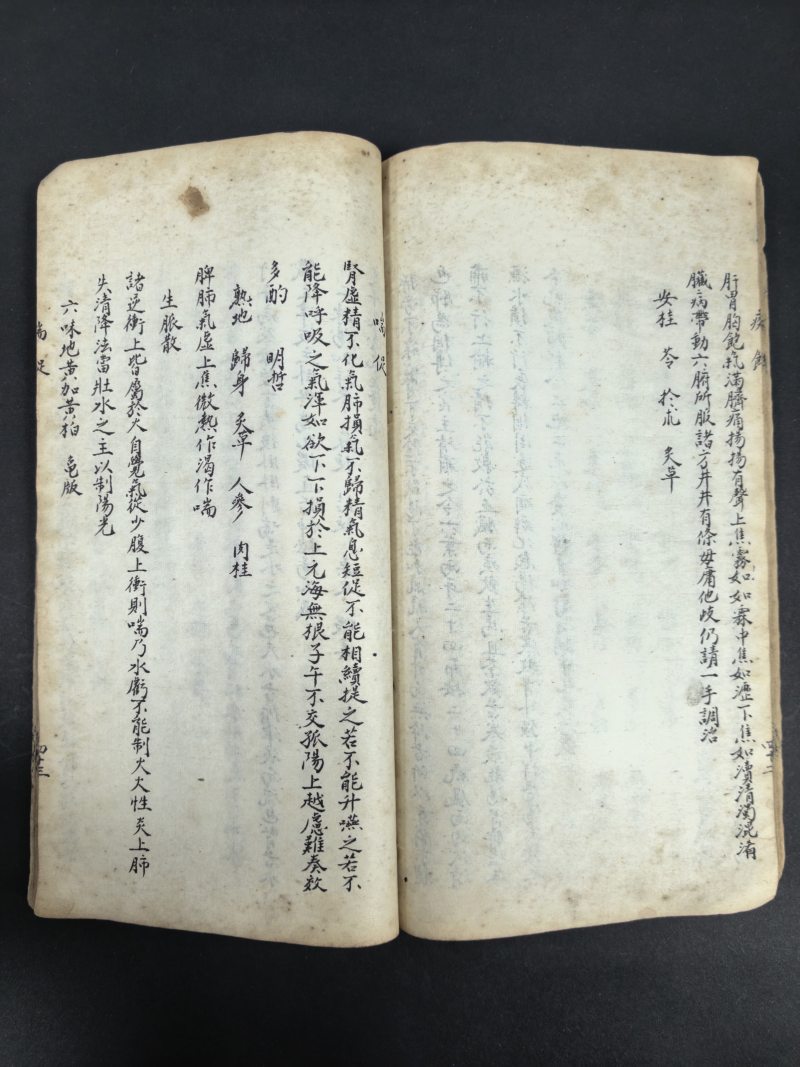 痰飲
肝胃胸飽氣滿臍痛揚揚有聲上焦霧如如霧中焦如瀝下焦如瀆清濁混淆
臟病帶動六腑所服諸方井井有條毋庸他歧仍請一手調治
安桂 苓 於朮 炙草
四十二
喘促
腎虛精不化氣肺損氣不歸精氣息短促不能相續提之若不能升嚥之若不
能降呼吸之氣渾如欲下下損於上元海無根子午不交孤陽上越慮難奏效
多酌 明哲
熟地 歸身 炙草 人參 肉桂
脾肺氣虛上焦微熱作渴作喘
生脈散
諸逆衝上皆屬於火自覺氣從少腹上衝則喘乃水虧不能制火火性炎上肺
失清降法當壯水之主以制陽光
六味地黃加黃柏 龜版
喘促
四十三